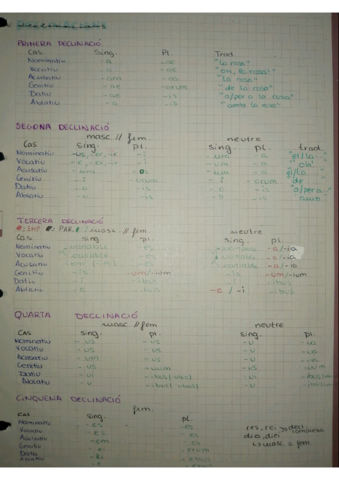 Declinacions
PRIMERA DECLINACIÓ
Cas Sing. Pl. Trad.
Nominatiu -a -ae "la rosa"
Vocatiu -a -ae "oh, la rosa!"
Acusatiu -am -as "la rosa"
Genitiu -ae -arum "de la rosa"
Datiu -ae -is "a/per a la rosa"
Ablatiu -a -is "amb la rosa"
SEGONA DECLINACIÓ
masc // fem neutre
Cas sing. pl. sing. pl. trad.
Nominatiu -us, -er, -ir -i -um -a "el/la
Vocatiu -e, -er, -ir -i -um -a oh!
Acusatiu -um -os -um -a el/la
Genitiu -i -orum -i -orum de
Datiu -o -is -o -is a/per a
Ablatiu -o -is -o -is amb
TERCERA DECLINACIÓ
IMP PAR masc // fem neutre
Cas sing. pl. sing. pl.
Nominatiu variable -es variable -a/-ia
Vocatiu variable -es variable -a/-ia
Acusatiu -es variable -a/-ia
Genitiu -is -um/-ium -is -um/-ium
Datiu -i -ibus -i -ibus
Ablatiu -e -ibus -e/-i -ibus
QUARTA DECLINACIÓ
masc // fem neutre
Cas sing. pl. sing. pl.
Nominatiu -us -us -u -ua
Vocatiu -us -us -u -ua
Acusatiu -um -us -u -ua
Genitiu -us -uum -us -uum
Datiu -ui
Ablatiu -u
CINQUENA DECLINACIÓ
fem.
cas sing. pl.
Nominatiu -es -es res, rei
Vocatiu -es -es
Acusatiu -em -es masc i fem
Genitiu -ei -erum
Datiu -ei -ebus
Ablatiu -e -ebus